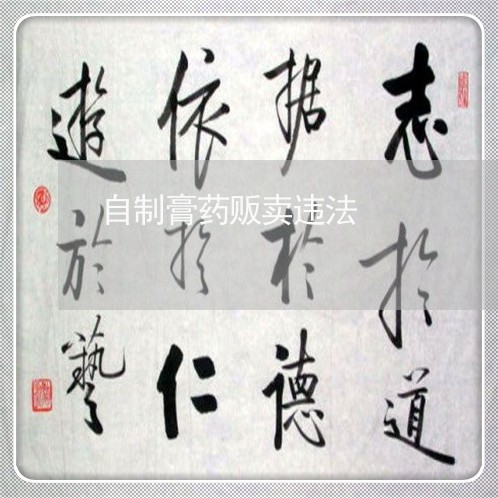 志於道
据於德
依於仁
遊於藝
自制膏药贩卖违法